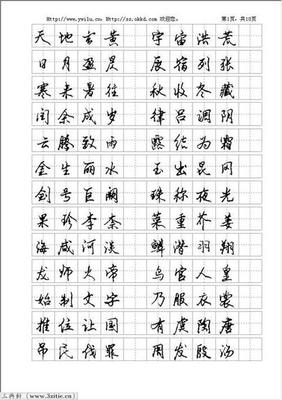 Http://www.ywilu.cn, Http://zz.okkd.cn 欢迎您。 第1页，共10页
天地玄黄 宇宙洪荒
日月盈昃 辰宿列张
寒来暑往 秋收冬藏
闰余成岁 律吕调阳
云腾致雨 露结为霜
金生丽水 玉出昆冈
剑号巨阙 珠称夜光
果珍李柰 菜重芥姜
海咸河淡 鳞潜羽翔
龙师火帝 鸟官人皇
始制文字 乃服衣裳
推位让国 有虞陶唐
吊民伐罪 周发殷汤
三典轩 (www.3zitie.cn)